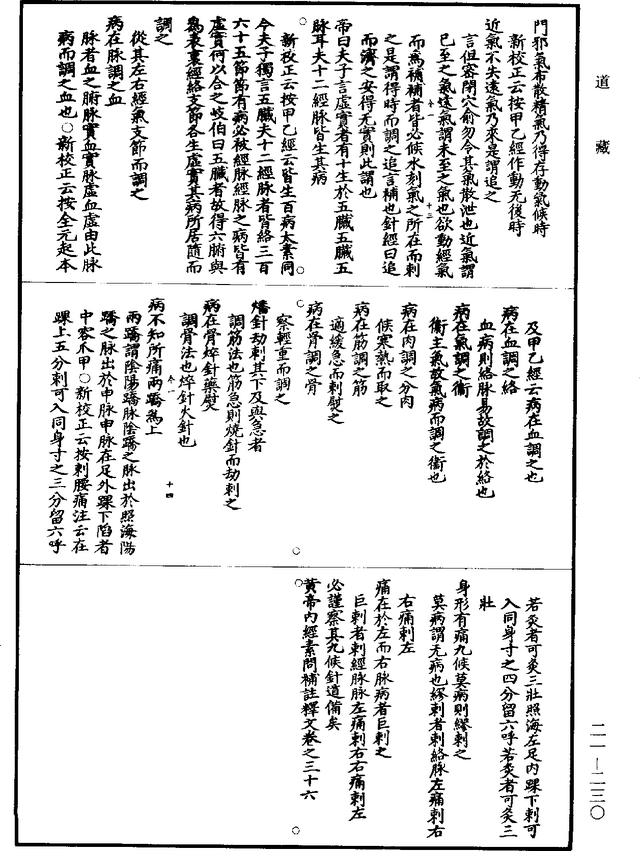 道藏
門邪氣布散精氣乃得存動氣候時
新校正云按甲乙經作動无後時
近氣不失遠氣乃來是謂追之
言但密閉穴俞勿令其氣散泄也近氣謂
已至之氣遠氣謂未至之氣也欲動經氣
而為補補者皆必候水刻氣之所在而刺
之是謂得時而調之追言補也針經曰追
而濟之安得无實則此謂也
帝曰夫子言虛實者有十生於五臟五臟五
脉耳夫十二經脉皆生其病
新校正云按甲乙經云皆生百病太素同
今夫子獨言五臟夫十二經脉者皆絡三百
六十五節節有病必被經脉經脉之病皆有
虛實何以合之岐伯曰五臟者故得六腑與
為表裏經絡支節各生虛實其病所居隨而
調之
從其左右經氣支節而調之
病在脉調之血
脉者血之腑脉實血實脉虛血虛由此脉
病而調之血也〇新校正云按全元起本
及甲乙經云病在血調之也
病在血調之絡
血病則絡脉易故調之於絡也
病在氣調之衛
衛主氣故氣病而調之衛也
病在肉調之分肉
候寒熱而取之
病在筋調之筋
適緩急而刺熨之
病在骨調之骨
察輕重而調之
燔針劫刺其下及與急者
調筋法也筋急則燒針而劫刺之
病在骨焠針藥熨
調骨法也焠針火針也
病不知所痛兩蹻為上
兩蹻謂陰陽蹻脉陰蹻之脉出於照海陽
蹻之脉出於申脉申脉在足外踝下陷者
中容爪甲〇新校正云按刺腰痛注云在
踝上五分刺可入同身寸之三分留六呼
若灸者可灸三壯照海左足內踝下刺可
入同身寸之四分留六呼若灸者可灸三
壯
身形有痛九候莫病則繆刺之
莫病謂无病也繆刺者刺絡脉左痛刺右
右痛刺左
痛在於左而右脉病者巨刺之
巨刺者刺經脉脉左痛刺右右痛刺左
必謹察其九候針道備矣
黃帝內經素問補註釋文卷之三十六
二一—二三〇